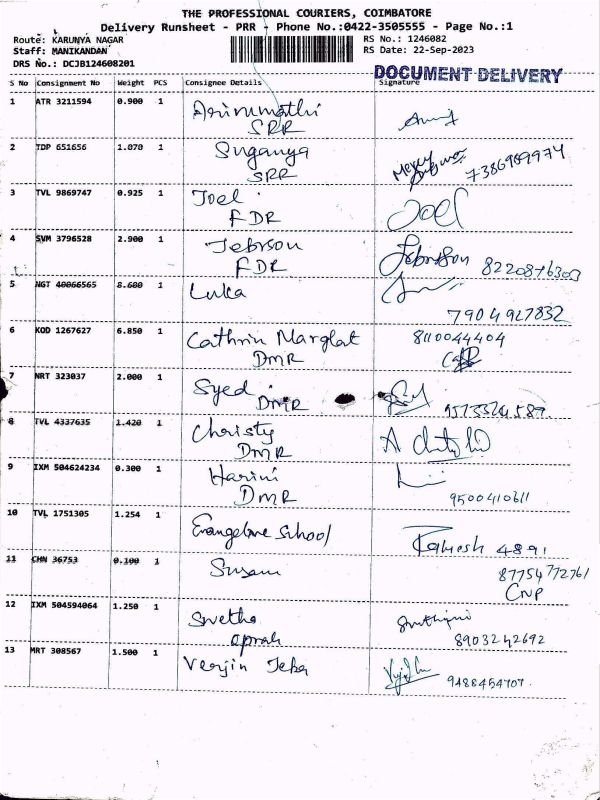 THE PROFESSIONAL COURIERS, COIMBATORE
Delivery Runsheet - PRR - Phone No.:0422-3505555 - Page No.:1
Route: KARUNYA NAGAR RS No.: 1246082
Staff: MANIKANDAN RS Date: 22-Sep-2023
DRS No.: DCJB124608201
DOCUMENT DELIVERY
S No Consignment No Weight PCS Consignee Details Signature
1 ATR 3211594 0.900 1 Arirumathi
SRR
2 TDP 651656 1.070 1 Suganya 7386969974
SRR
3 TVL 9869747 0.925 1 Joel Joel
FDR
4 SVM 3796528 2.900 1 Jebrson
FDR 8220876303
5 NGT 40066565 8.600 1 Luka
7904927832
6 KOD 1267627 6.850 1 Cathrin Marglat 8110044404
DMR
7 NRT 323037 2.000 1 Syed
DMR
8 TVL 4337635 1.420 1 Christy
DMR
9 IXM 504624234 0.300 1 Harini
DMR 9500410611
10 TVL 1751305 1.254 1 Evangeline School
Ramesh 4891
11 CHN 36753 0.100 1 Susam 87754772761
CNP
12 IXM 504594064 1.250 1 Swetha
8903242692
13 MRT 308567 1.500 1 Verjin Jeba
9488454707